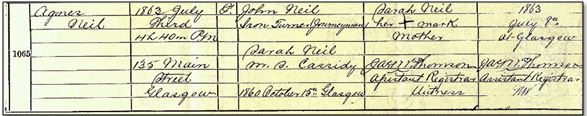 Agnes 1863 July F John Neil Sarah Neil 1863
Neil Third Iron Turner Journeyman her + mark July 9th
4h 40m P.M. Mother at Glasgow
1065 Sarah Neil
135 Main M. S. Cassidy Thomson Thomson
Street Assistant Registrar Assistant Registrar
Glasgow 1860 October 15th Glasgow Witness